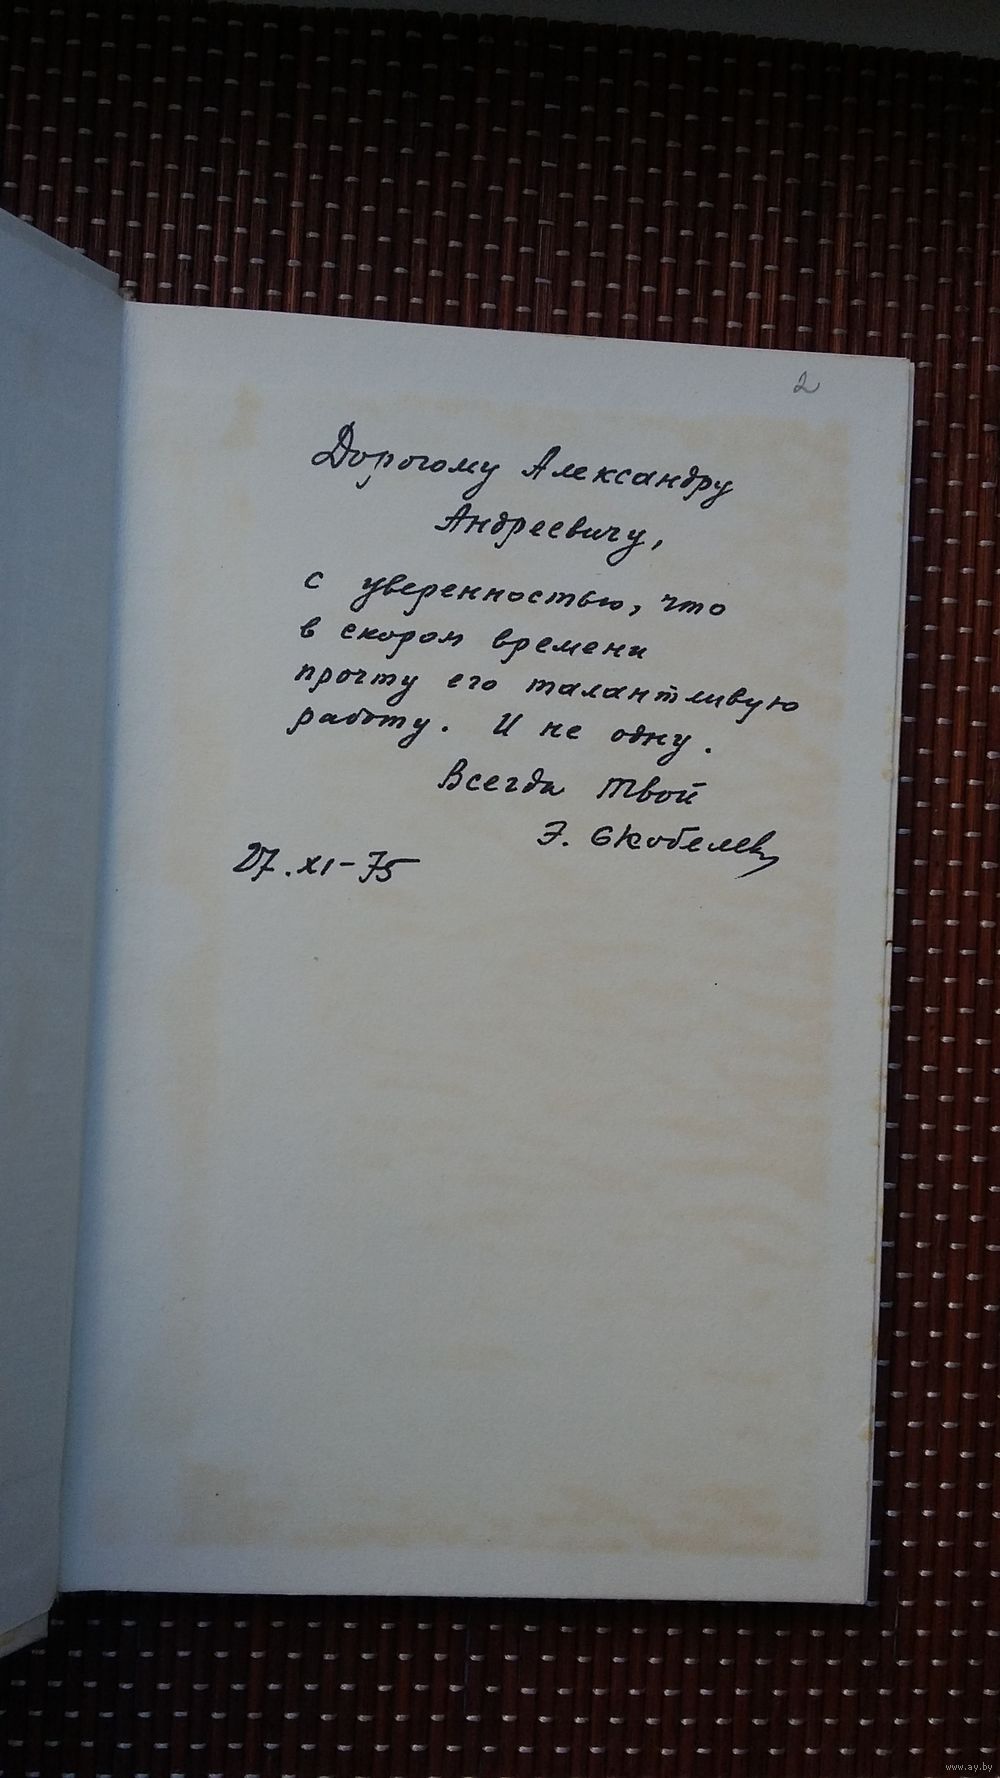 2
Дорогому Александру
Андреевичу,
с уверенностью, что
в скором времени
прочту его талантливую
работу. И не одну.
Всегда твой
Э. Скобелев
27.XI-75
www.ay.by